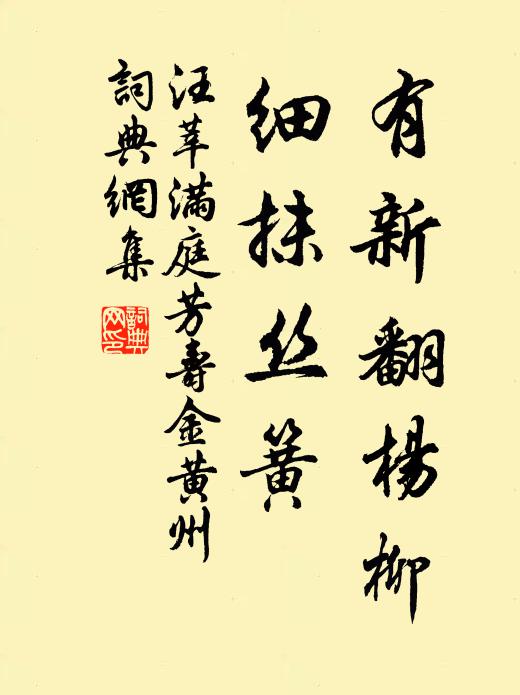 有新翻楊柳
细抹丝簧
汪莘满庭芳壽金黄州
詞典網集
詞典
网印